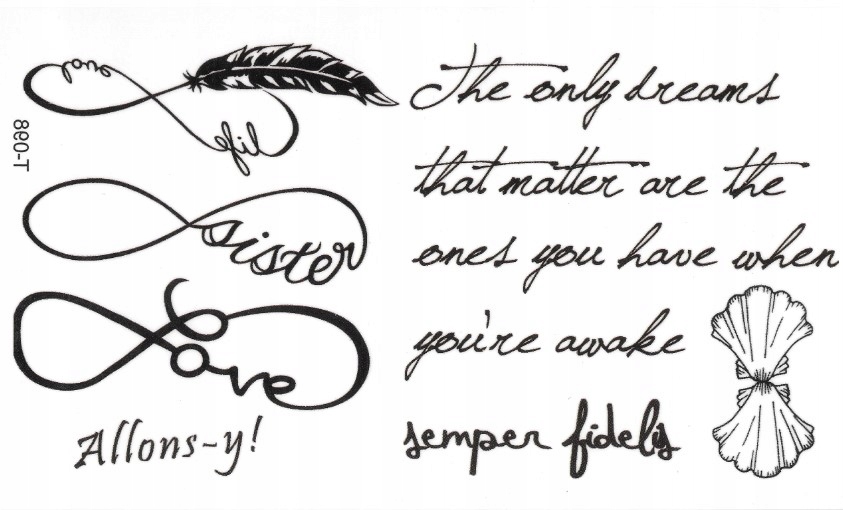 one
life
890-T
sister
love
Allons-y!
The only dreams
that matter are the
ones you have when
you're awake
semper fidelis